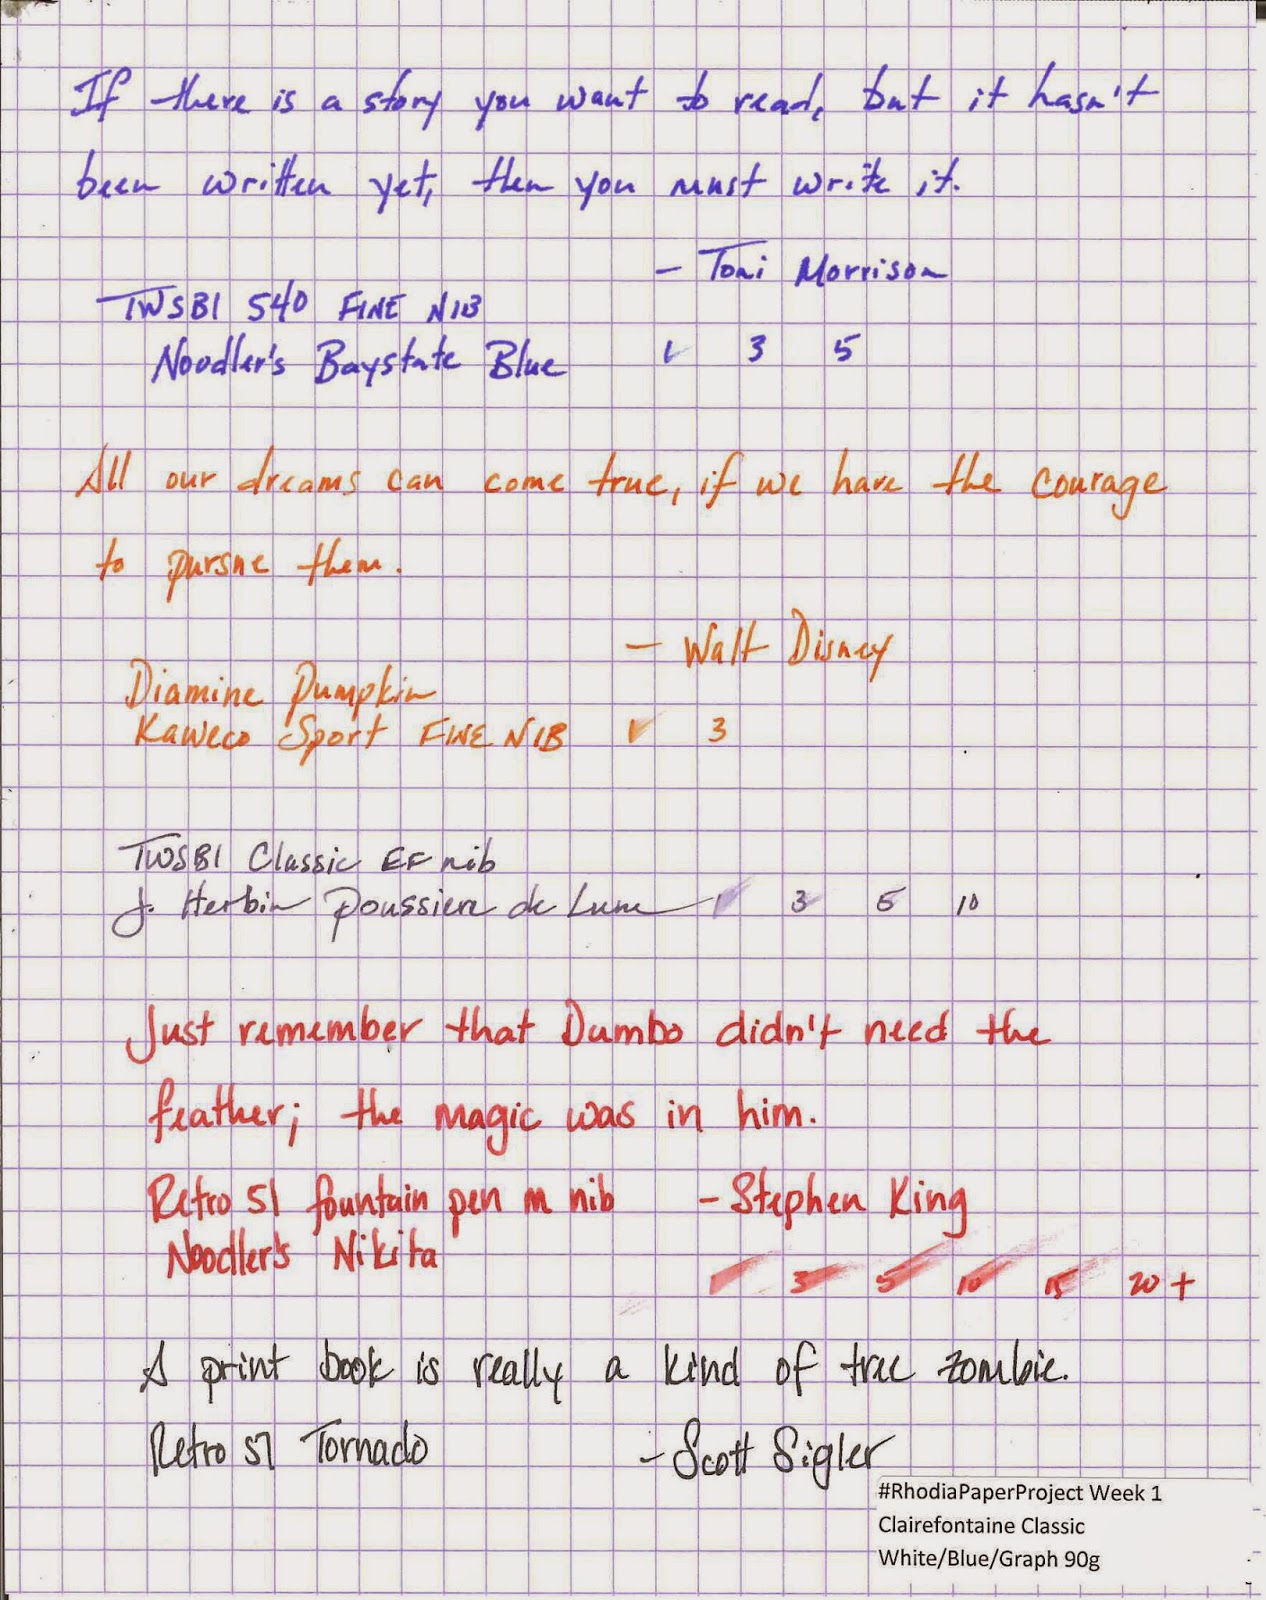 If there is a story you want to read, but it hasn't
been written yet, then you must write it.
- Toni Morrison
TWSBI 540 FINE NIB
Noodler's Baystate Blue 1 3 5
All our dreams can come true, if we have the courage
to pursue them.
- Walt Disney
Diamine Pumpkin
Kaweco Sport FINE NIB 1 3
TWSBI Classic EF nib
J. Herbin Poussiere de Lune 1 3 5 10
Just remember that Dumbo didn't need the
feather; the magic was in him.
Retro 51 fountain pen m nib - Stephen King
Noodler's Nikita
1 3 5 10 15 20+
A print book is really a kind of tree zombie.
Retro 51 Tornado - Scott Sigler
#RhodiaPaperProject Week 1
Clairefontaine Classic
White/Blue/Graph 90g